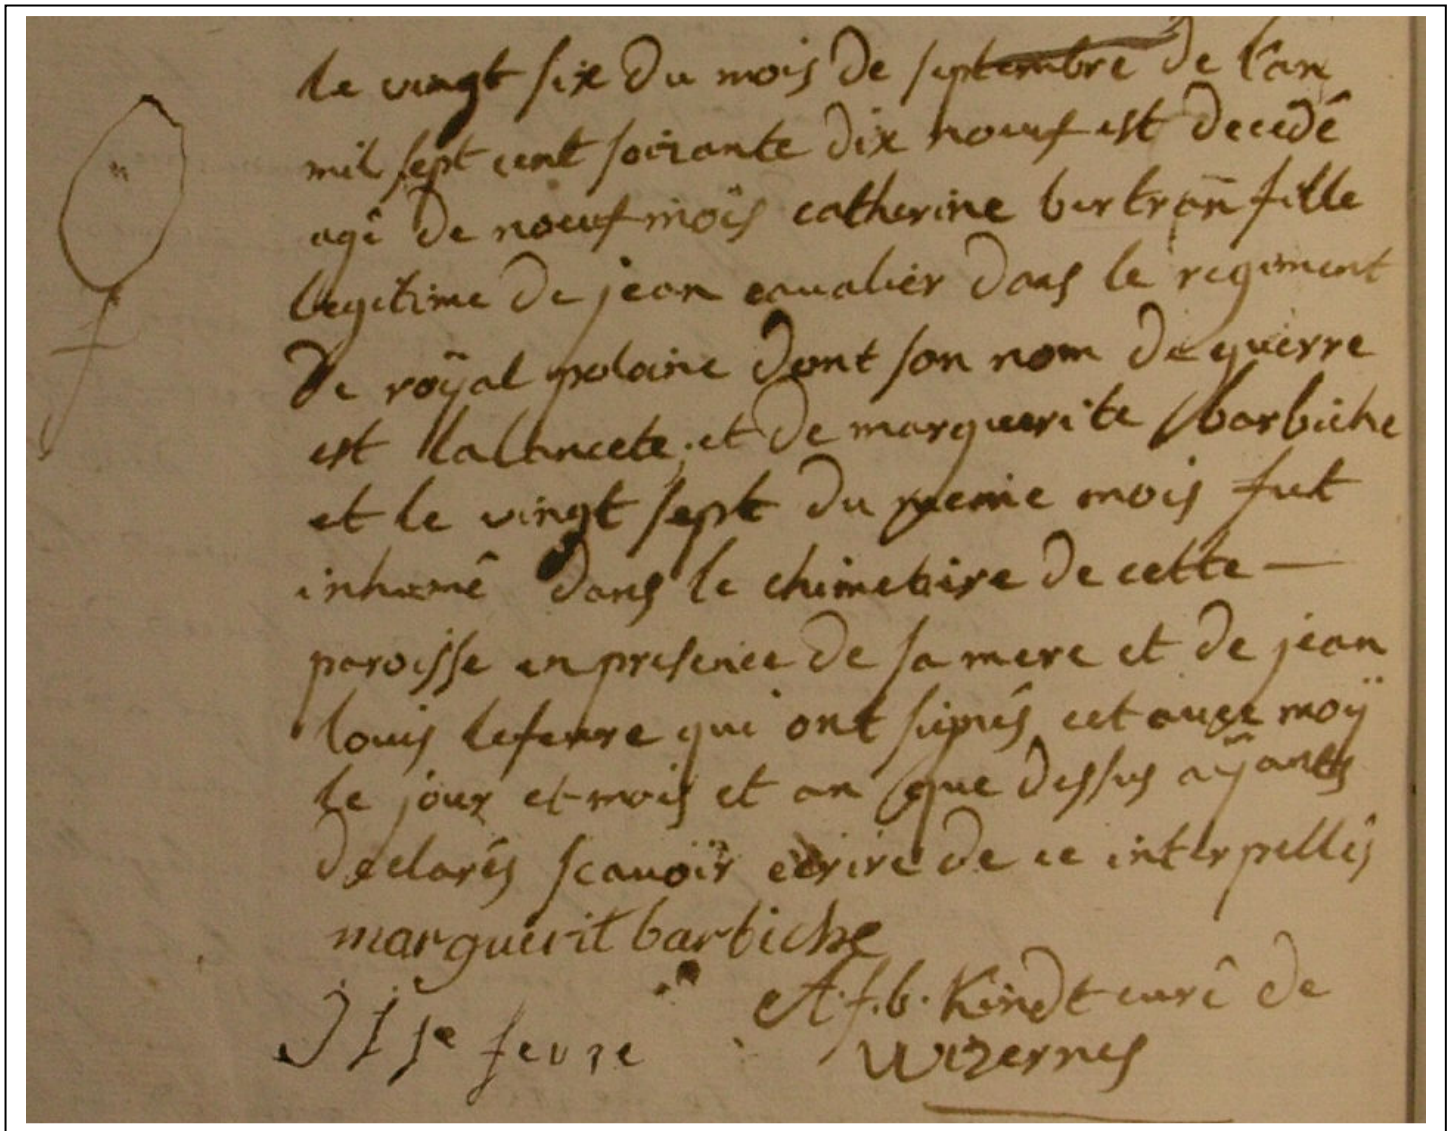 le vingt six du mois de septembre de l'an
mil sept cent soixante dix noeuf est decedé
agé de noeuf moïs catherine bertrañ fille
legitime de jean cavalier dans le regiment
de röyal polaine dont son nom de guerre
est lalancete, et de marguerite barbiche
et le vingt sept du meme mois fut
inhumé dans le chimetire de cette —
paroisse en presence de sa mere et de jean
louis lefevre qui ont signés cet avec moÿ
le jour et mois et an que dessus aÿants
declarés scavoir ecrire de ce interpellés
marguerit barbiche
J l le fevre
A. f. b. Kindt curé de
Wizernes